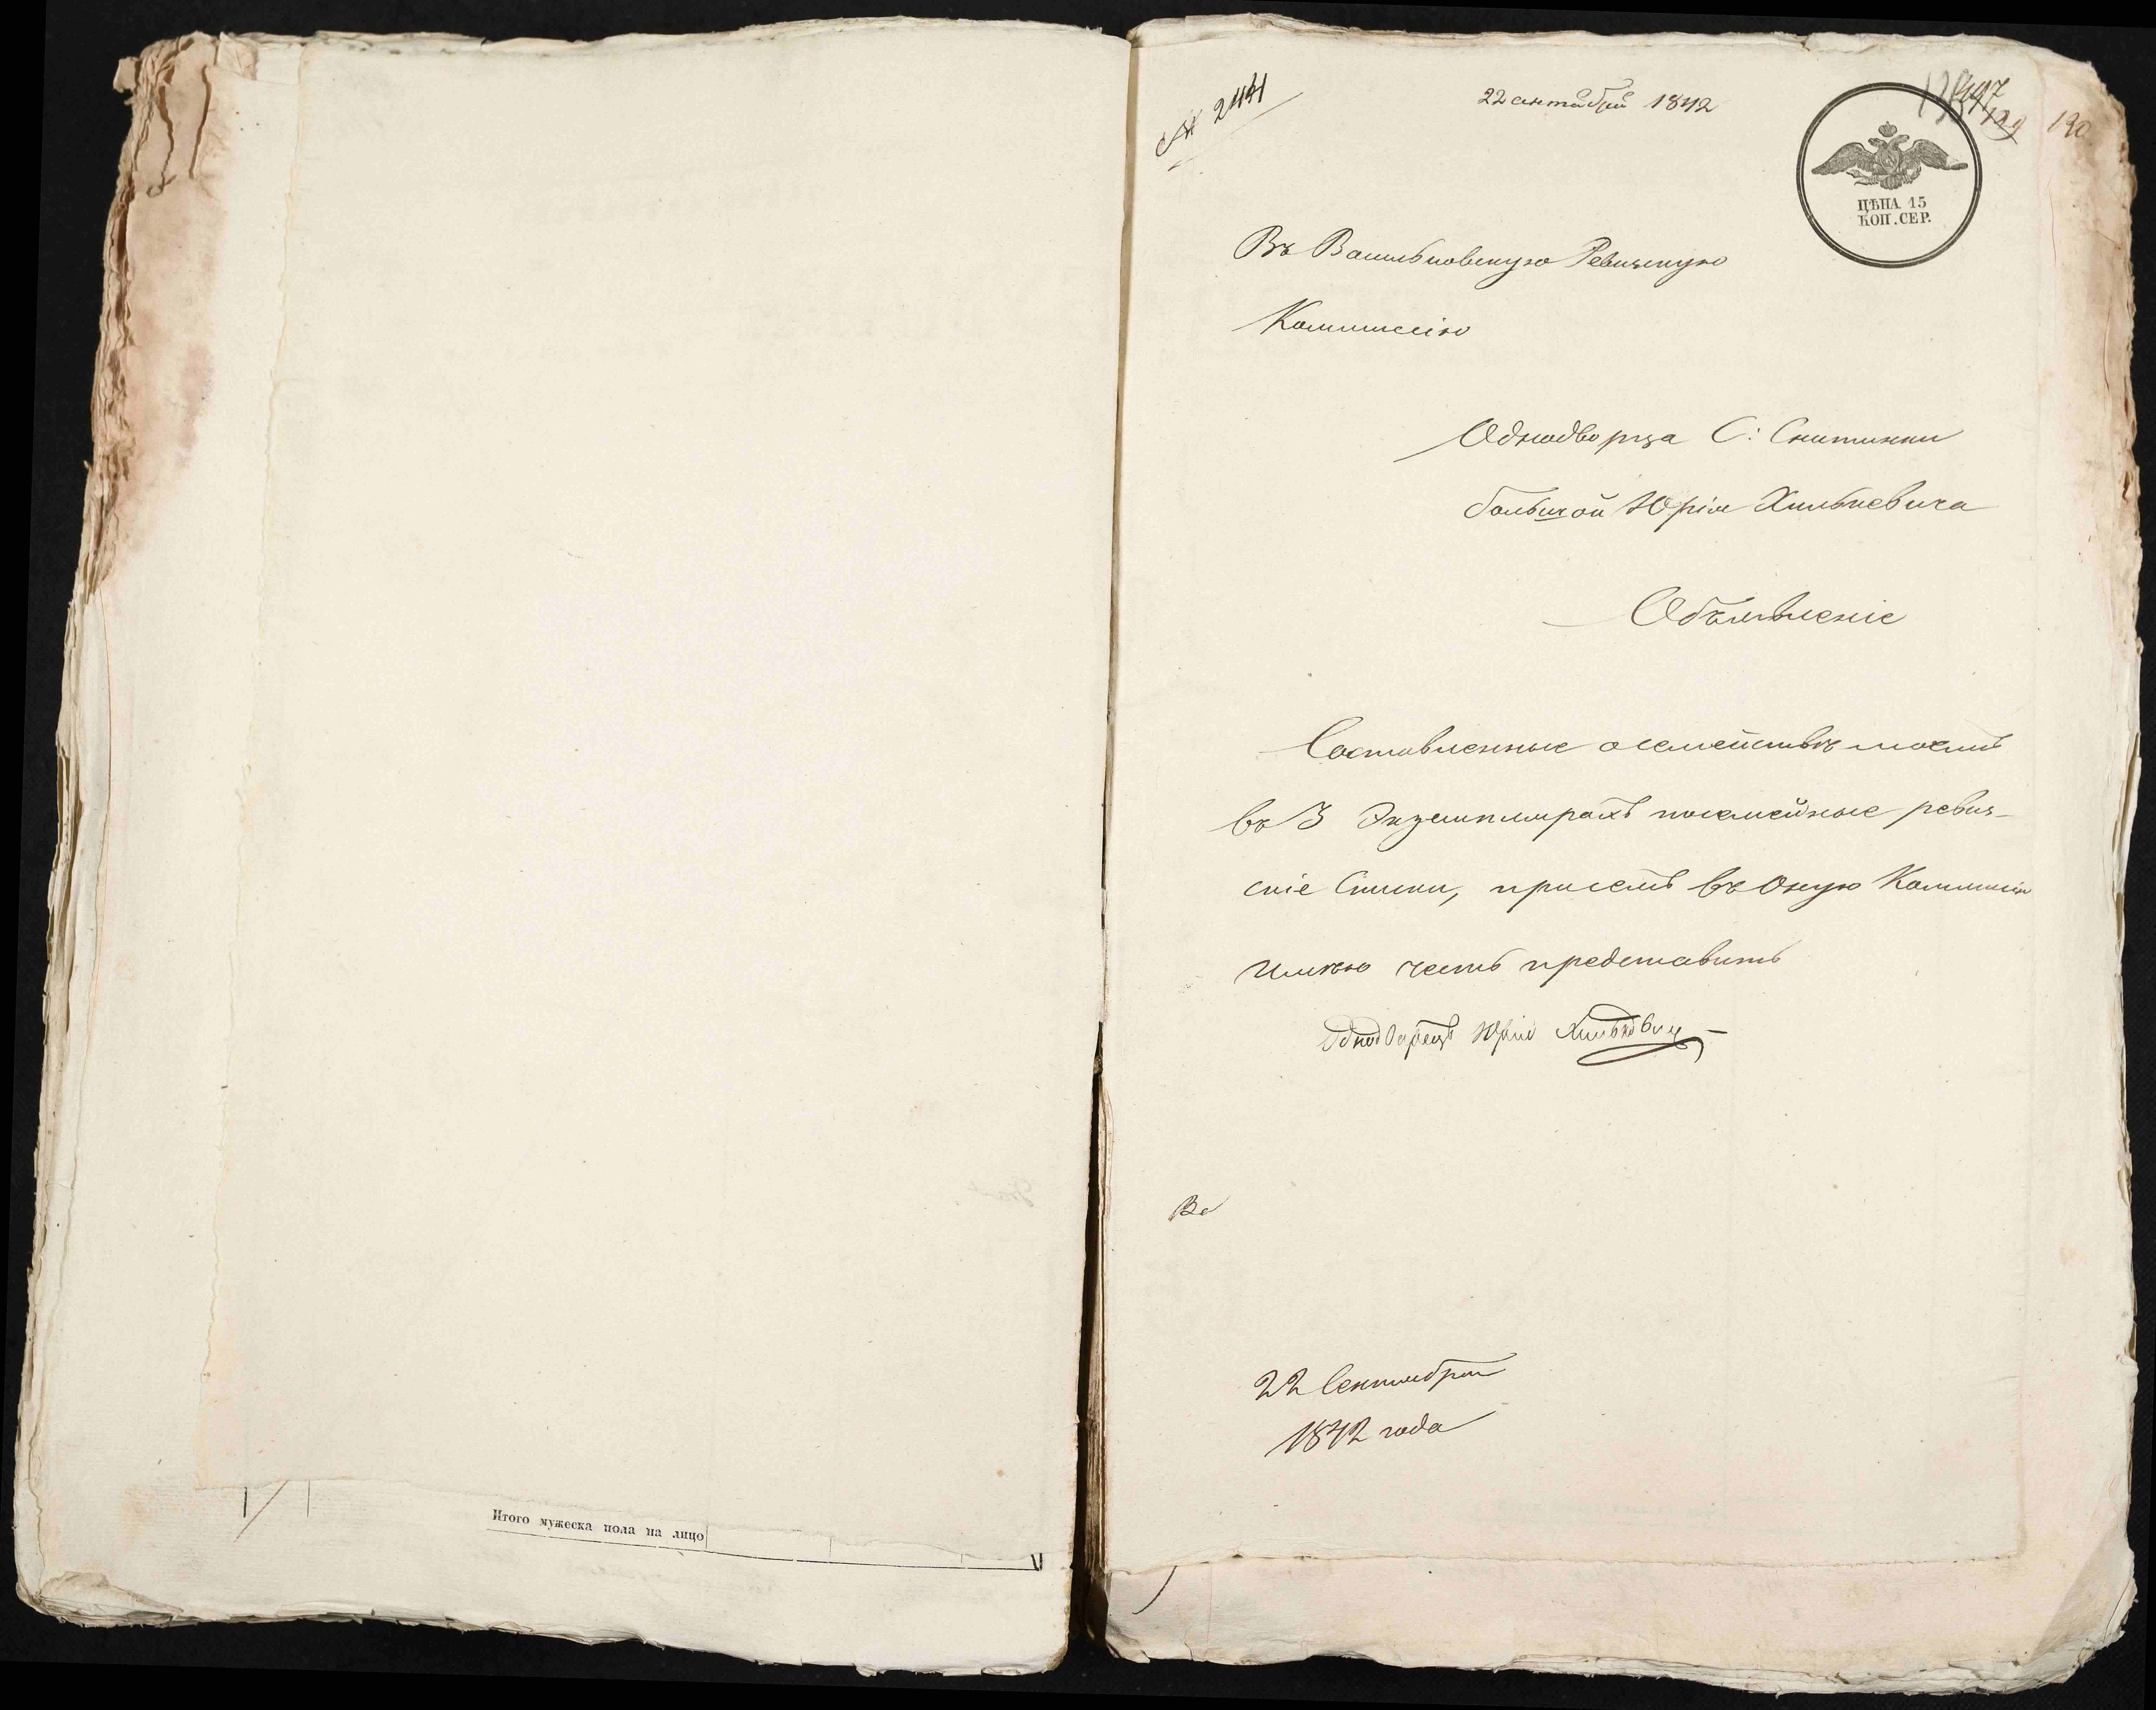 Итого мужеска пола на лицо
№ 2441
22 сентября 1842
190
ЦѢНА 15
КОП. СЕР.
Въ Васильковскую Ревизскую
Коммиссію
Однодворца С: Снитинки
большой Юрія Хилькевича
Объявленіе
Составленные о семействѣ моемъ
въ 3 Экземплярахъ посемейные ревиз-
скіе Списки, присемъ въ Оную Коммисію
имѣю честь представить
Однодворецъ Юрій Хилькевичъ
22 Сентября
1842 года